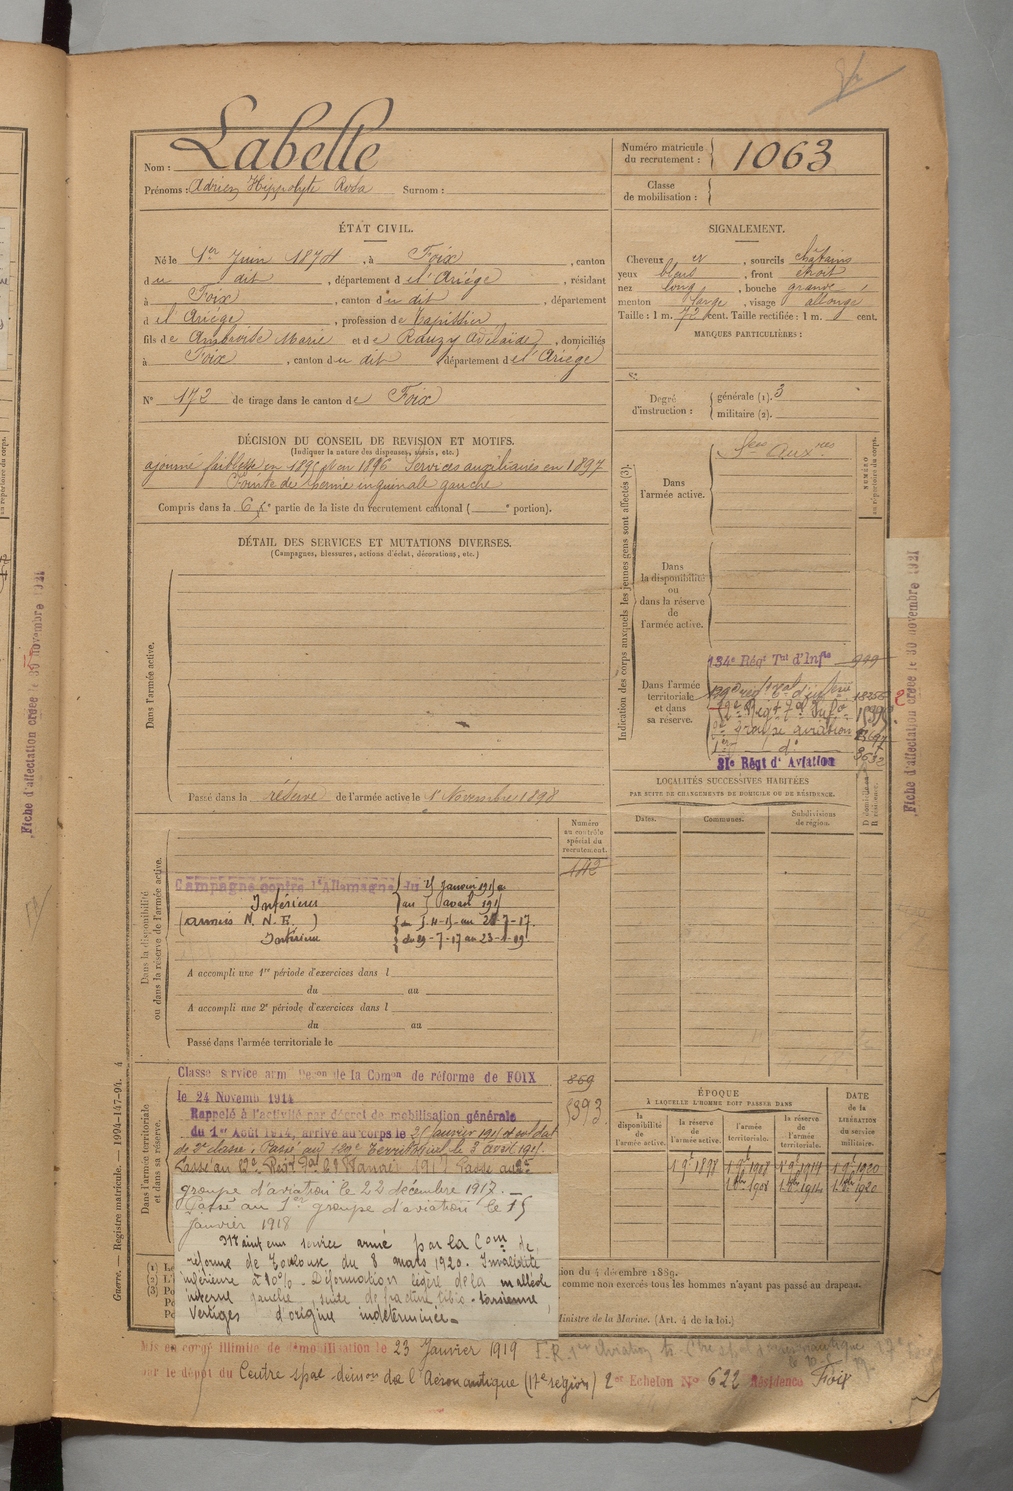 Nom : Labelle
Prénoms : Adrien Hippolyte Surnom :
Numéro matricule du recrutement : 1063
Classe de mobilisation :
ÉTAT CIVIL.
Né le 1er Juin 1874, à Foix, canton
du dit, département de l'Ariège, résidant
à Foix, canton du dit, département
de l'Ariège, profession de tapissier
fils de Marie et de Rauzy Adélaïde, domiciliés
à Foix, canton du dit, département de l'Ariège
N° 172 de tirage dans le canton de Foix
SIGNALEMENT.
Cheveux et, sourcils châtains
yeux bleus, front étroit
nez long, bouche grande
menton large, visage allongé
Taille : 1 m. 72 cent. Taille rectifiée : 1 m. cent.
MARQUES PARTICULIÈRES :
Degré d'instruction : générale (1). 3
militaire (2).
DÉCISION DU CONSEIL DE REVISION ET MOTIFS.
(Indiquer la nature des dispenses, sursis, etc.)
ajourné faiblesse en 1895 et en 1896 Services auxiliaires en 1897
Pointe de hernie inguinale gauche
Compris dans la 6e partie de la liste du recrutement cantonal ( e portion).
DÉTAIL DES SERVICES ET MUTATIONS DIVERSES.
(Campagnes, blessures, actions d'éclat, décorations, etc.)
Dans l'armée active.
Passé dans la réserve de l'armée active le 1 Novembre 1898
Indication des corps auxquels les jeunes gens sont affectés (3).
NUMÉRO au répertoire du corps.
Dans l'armée active.
Sces Auxres
Dans la disponibilité ou dans la réserve de l'armée active.
Dans l'armée territoriale et dans sa réserve.
134e Régt Tal d'Infie
d'aviation
31e Régt d'Aviation
Fiche d'affectation créée le 30 novembre 1921
Fiche d'affectation créée le 30 novembre 1921
LOCALITÉS SUCCESSIVES HABITÉES
PAR SUITE DE CHANGEMENTS DE DOMICILE OU DE RÉSIDENCE.
Dates. Communes. Subdivisions de région. D domicile ou R résidence.
Dans la disponibilité ou dans la réserve de l'armée active.
Numéro au contrôle spécial du recrutement.
142
Campagne contre l'Allemagne du 25 Janvier 1915
Intérieur au avril 1915
(armées N. N. E.)
Intérieur du 29-7-17 au 23-1-19
A accompli une 1re période d'exercices dans l
du au
A accompli une 2e période d'exercices dans l
du au
Passé dans l'armée territoriale le
Dans l'armée territoriale et dans sa réserve.
Classé service armé Déson de la Comon de réforme de FOIX
le 24 Novemb 1914
Rappelé à l'activité par décret de mobilisation générale
du 1er Août 1914, arrivé au corps le 25 Janvier 1915 et soldat
de 2e classe. Passé au 129e Territorial le 3 avril 1915.
groupe d'aviation le 22 décembre 1917. —
Passé au 1er groupe d'aviation le 15
Janvier 1918
Maintenu service armé par la Comon de
réforme de Toulouse du 8 mars 1920. Invalidité
inférieure à 10%. Déformation légère de la malléole
interne gauche, suite de fracture tibio-tarsienne,
Vertiges d'origine indéterminée.
869
1393
ÉPOQUE
À LAQUELLE L'HOMME DOIT PASSER DANS
la disponibilité de l'armée active. la réserve de l'armée active. l'armée territoriale. la réserve de l'armée territoriale.
DATE de la LIBÉRATION du service militaire.
1 9e 1898 1 9e 1908 1 9e 1914 1 9e 1920
1 1908 1 1914 1 1920
(1)
(2)
(3)
tion du 4 décembre 1889.
comme non exercés tous les hommes n'ayant pas passé au drapeau.
Ministre de la Marine. (Art. 4 de la loi.)
Guerre. — Registre matricule. — 1994-147-94. 4
Mis en congé illimité de démobilisation le 23 Janvier 1919
sur le dépôt du Centre spal démon de l'Aéronautique (17e région) 2e Echelon No 622 Résidence Foix